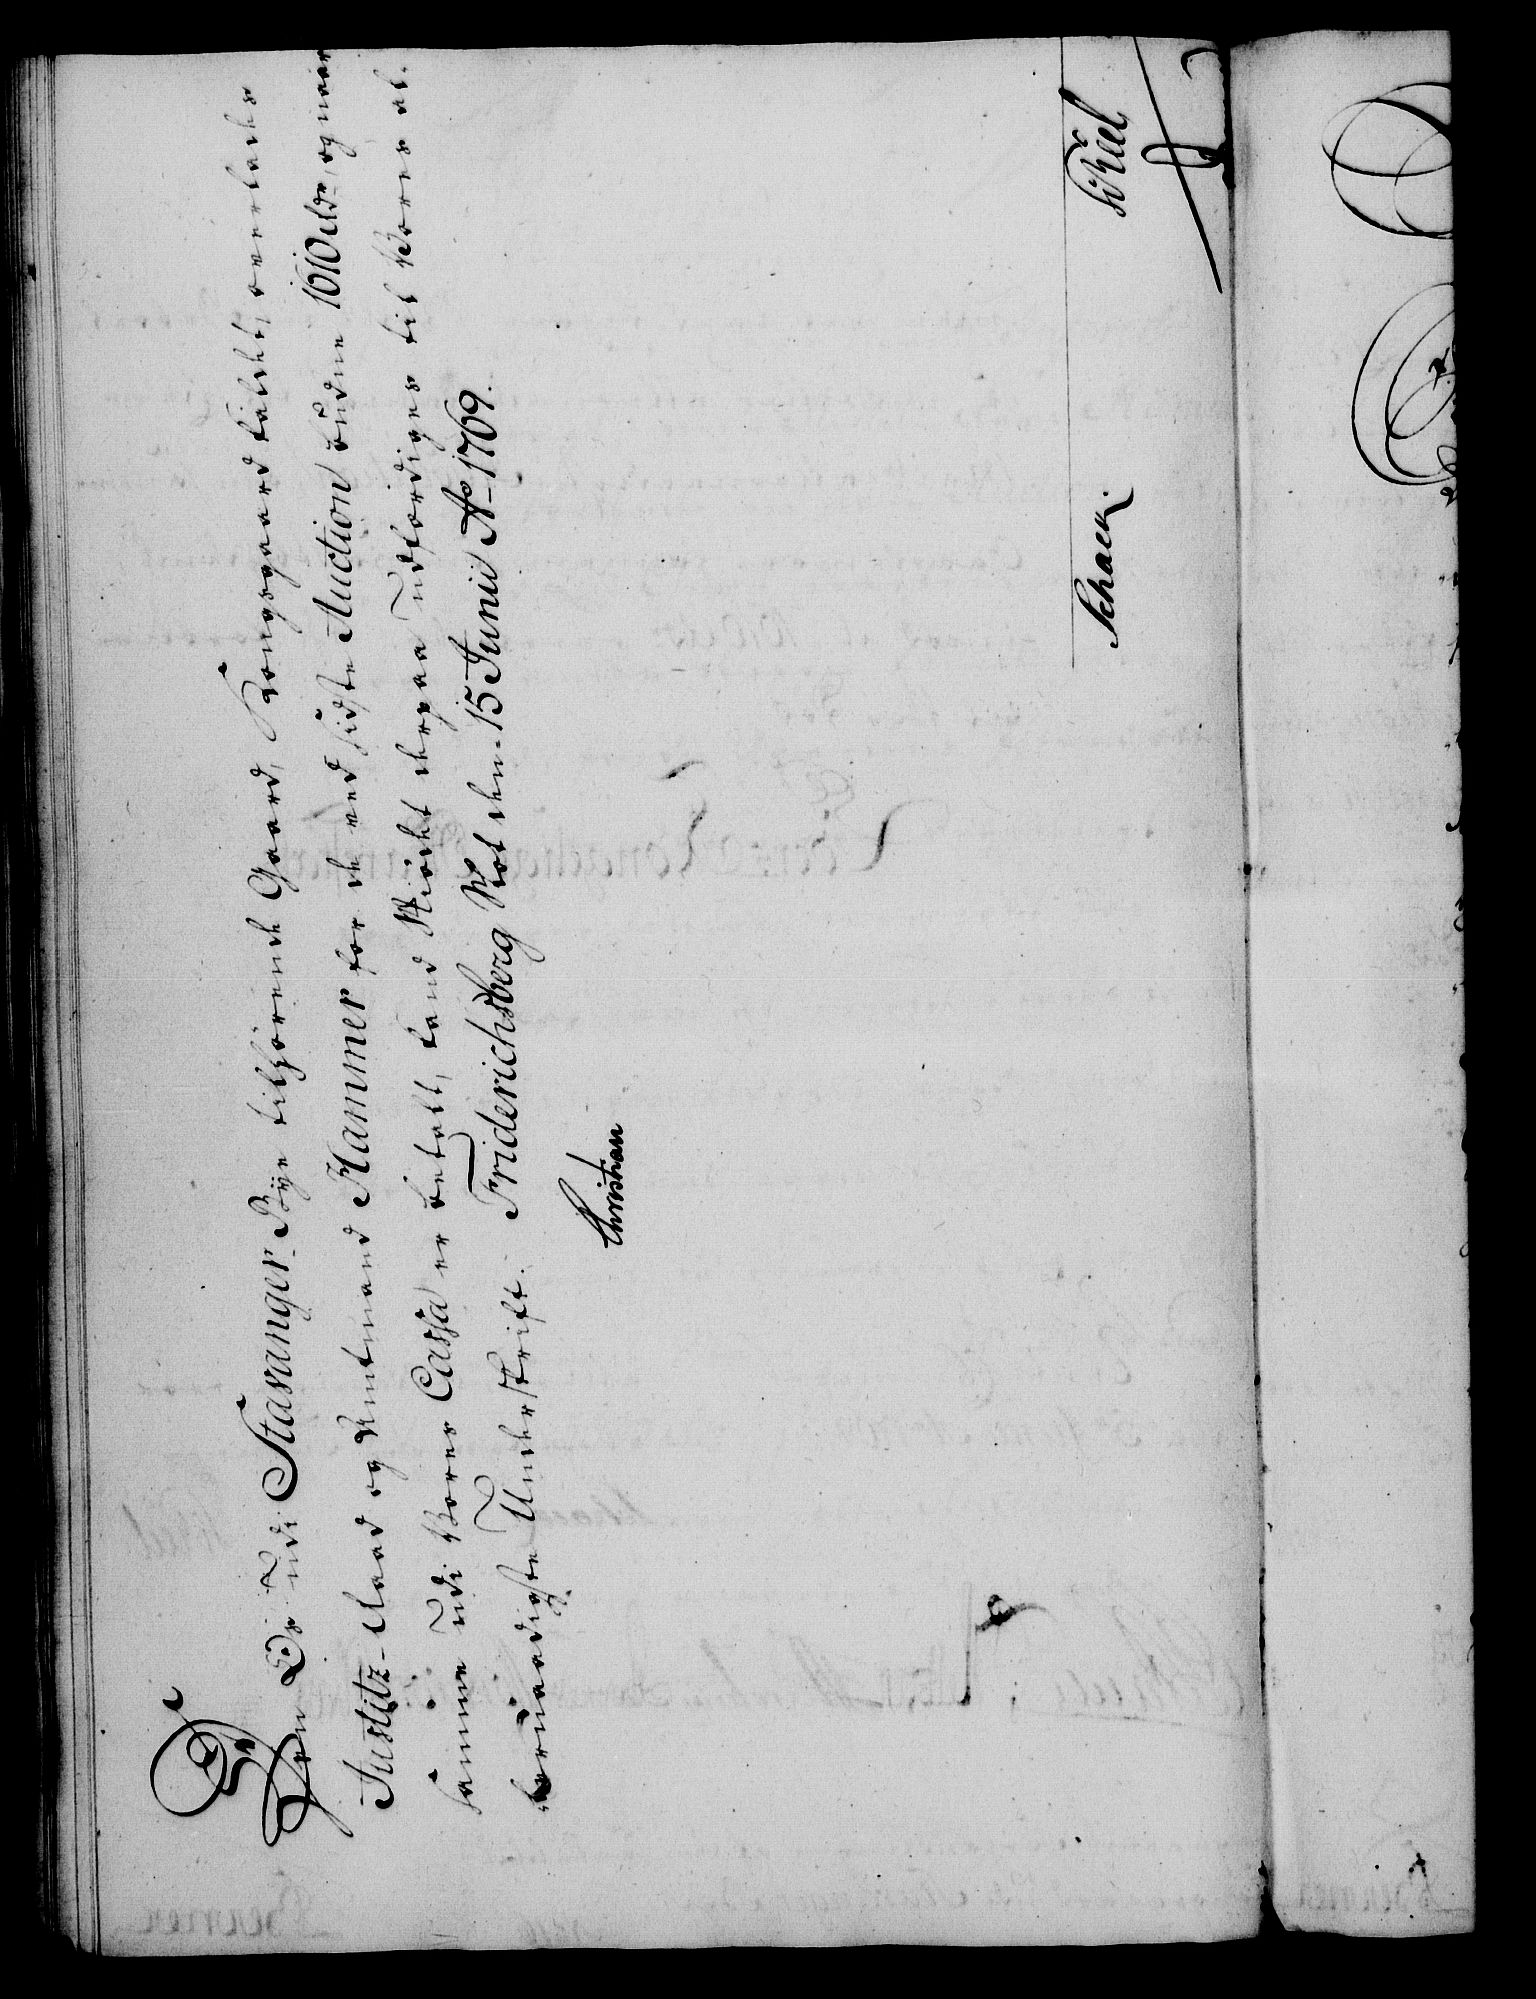 Den Os udi Stavanger Bÿe tilhørende Gaard, Kongsgaard kaldet, overlades
Justitz-Raad og Amtmand Hammer for de ved sidste Auction budne 1610 rdr, og naar
samme udi Vores Cassa er betalt, kand Skiødet derpaa udfærdiges til Vores al-
lernaadigste Underskrift. Friderichsberg Slot den 15 Junii Ao 1769.
Christian
Schack.